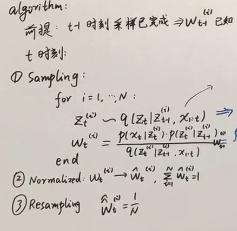 algorithm:
前提: t-1 时刻 采样已完成 ⇒ W_{t-1}^{(i)} 已知
t 时刻:
① Sampling:
for i=1, ..., N:
z_t^{(i)} ~ q(z_t|z_{t-1}^{(i)}, x_{1:t})
w_t^{(i)} = \frac{p(x_t|z_t^{(i)}) · p(z_t^{(i)}|z_{t-1}^{(i)})}{q(z_t^{(i)}|z_{t-1}^{(i)}, x_{1:t})}
end
② Normalized: w_t^{(i)} → ŵ_t^{(i)}, \sum_{i=1}^{N} ŵ_t^{(i)} = 1
③ Resampling ŵ_t^{(i)} = \frac{1}{N}